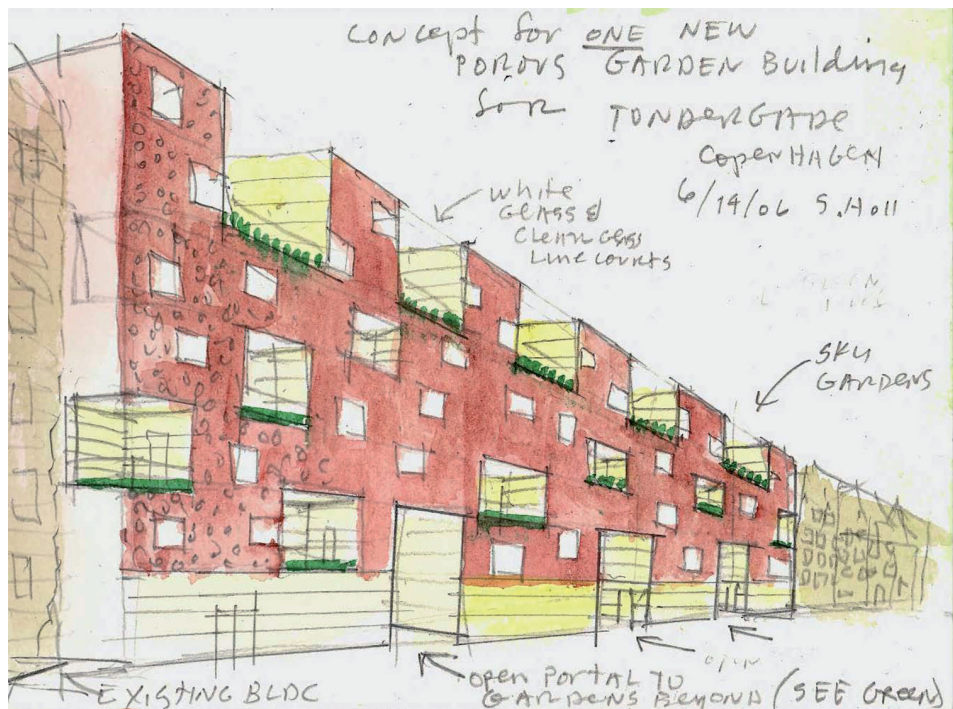 CONCEPT for ONE NEW
POROUS GARDEN Building
for TONDERGADE
COPENHAGEN
6/14/06 S.Holl
white
GLASS &
CLEAR GLASS
LINE COURTS
SKY
GARDENS
EXISTING BLDG
open PORTAL TO
GARDENS BEYOND (SEE GREEN)
open